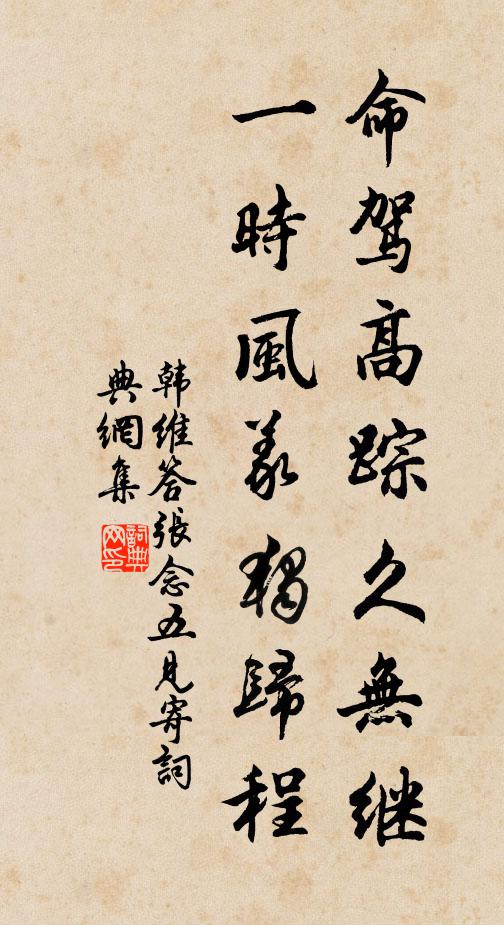 命驾高踪久無继
一時風義獨歸程
韩維答張念五見寄詞
典網集
詞典
网印